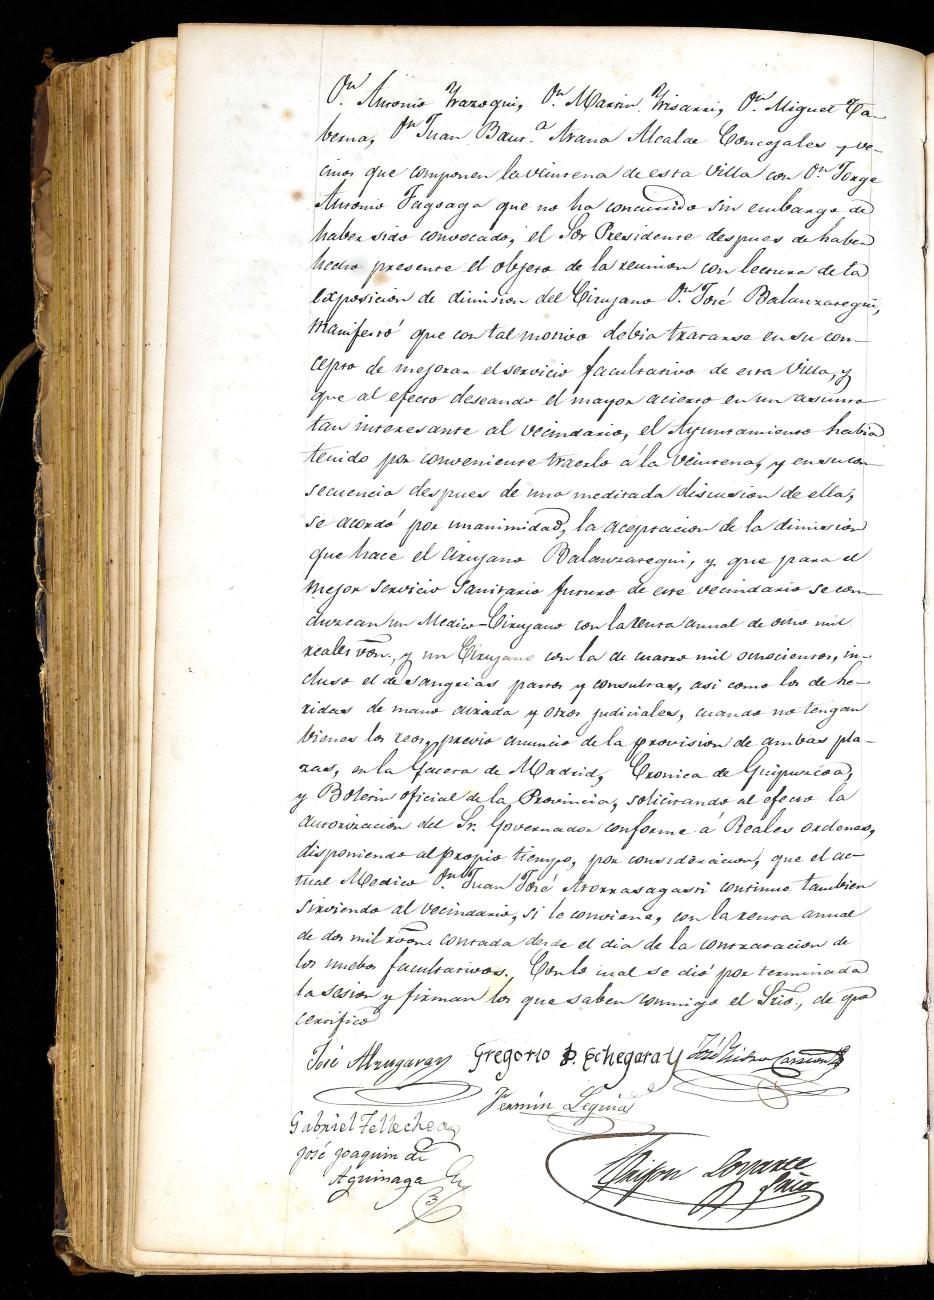 Dn Antonio Yrazoqui, Dn Martin Yrisarri, Dn Miguel Ta-
berna, Dn Juan Baut.a Arana Alcalde Concejales y ve-
cinos que componen la veintena de esta Villa con Dn Jorge
Antonio Fagoaga que no ha concurrido sin embargo de
haber sido convocado; el Sor Presidente despues de haber
hecho presente el objeto de la reunion con lectura de la
exposicion de dimision del Cirujano Dn José Balanzategui,
manifestó que con tal motivo debia tratarse en su con-
cepto de mejorar el servicio facultativo de esta Villa, y
que al efecto deseando el mayor acierto en un asunto
tan interesante al vecindario, el Ayuntamiento habia
tenido por conveniente traerlo á la veintena, y en su con
secuencia despues de una meditada discusion de ella,
se acordó por unanimidad, la aceptacion de la dimision
que hace el Cirujano Balanzategui, y que para el
mejor servicio Sanitario futuro de este vecindario se con
duzcan un Medico-Cirujano con la renta anual de ocho mil
reales von., y un Cirujano con la de cuatro mil ochocientos, in-
cluso el de sangrias partos y consultas, asi como los de he-
ridas de mano airada y otros judiciales, cuando no tengan
bienes los reos, previo anuncio de la provision de ambas pla-
zas, en la Gaceta de Madrid, Cronica de Guipuzcoa,
y Boletin oficial de la Provincia, solicitando al efecto la
autorizacion del Sr. Governador conforme á Reales ordenes,
disponiendo al propio tiempo, por consideracion, que el ac-
tual Medico Dn Juan José Arorrasagasti continue tambien
sirviendo al vecindario, si le conviene, con la renta anual
de dos mil rvon. contada desde el dia de la contratacion de
los nuebos facultativos. Con lo cual se dió por terminada
la sesion y firman los que saben conmigo el Srio, de que
certifico
José Alzugaray Gregorio D. Echegaray José Ysidro
Fermin Leguia
Gabriel Tellechea
José Joaquin de
Aguinaga
Srio